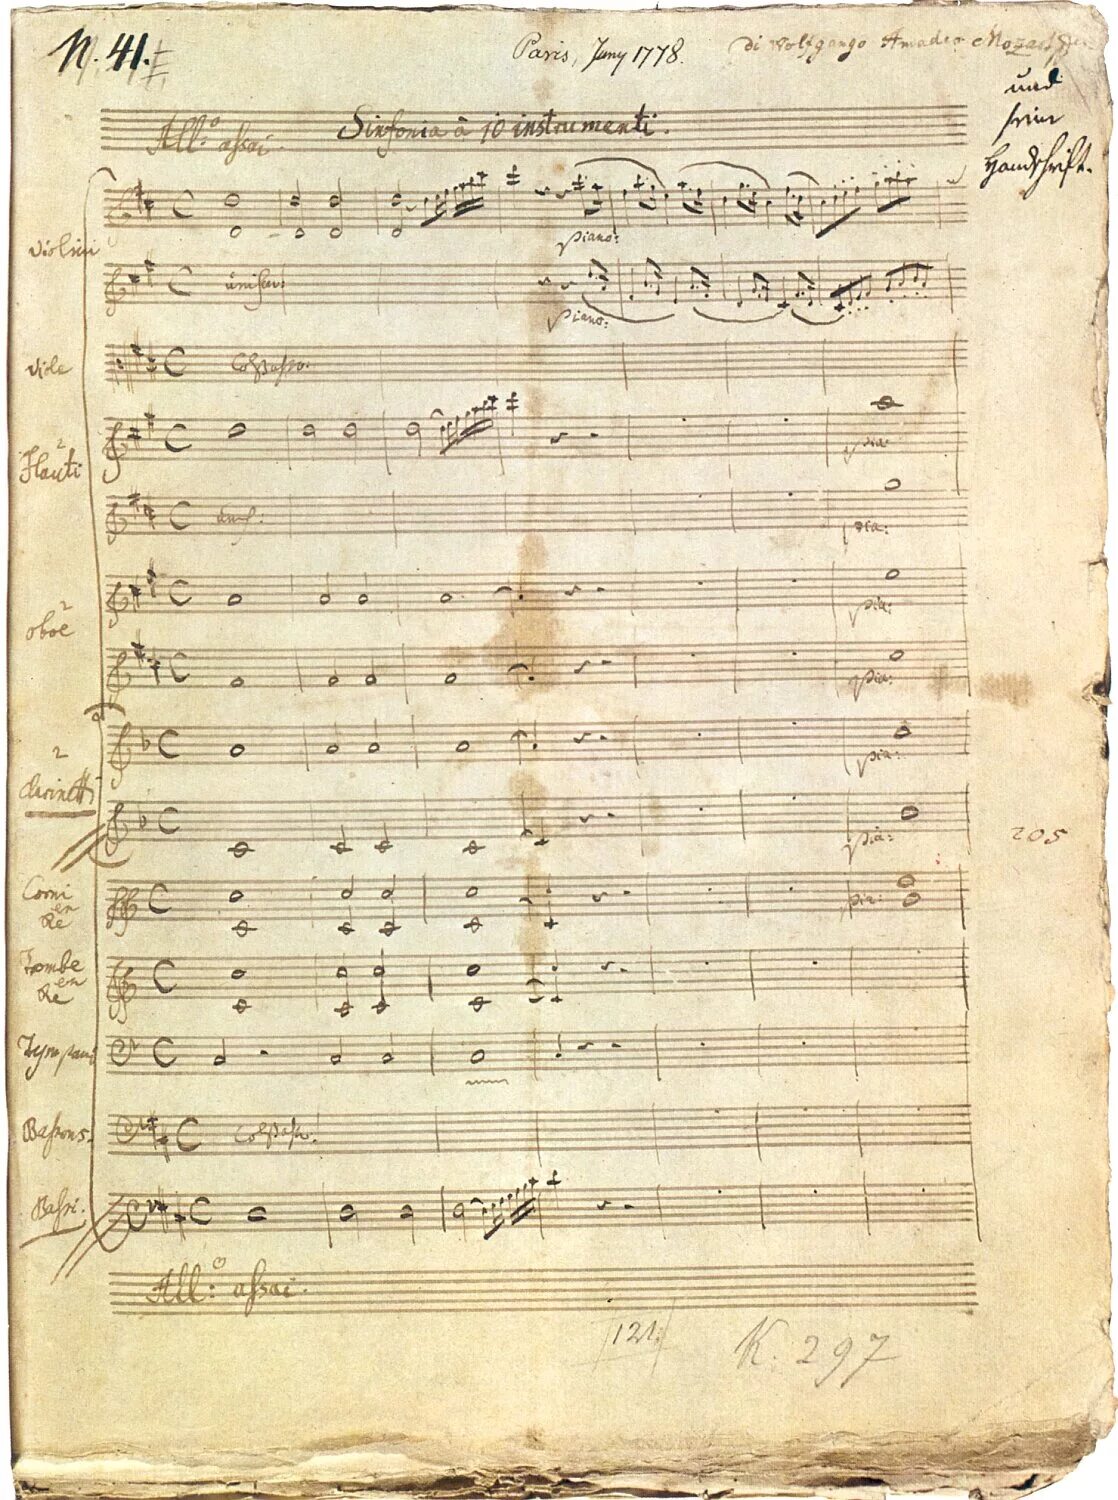 N. 41.
Paris, Juny 1778.
di Wolfgango Amadeo Mozart
und
seine
Handschrift.
Sinfonia à 10 instrumenti.
All:o assai.
Violini
piano:
unison:
piano:
Viole
Col Basso.
2
Flauti
pia:
unis:
pia:
2
oboe
pia:
pia:
2
clarinetti
pia:
pia:
205
Corni
en
Re
pia:
Trombe
en
Re
Tympani
Bassons.
Col Basso.
Bassi.
All:o assai.
121.
K. 297